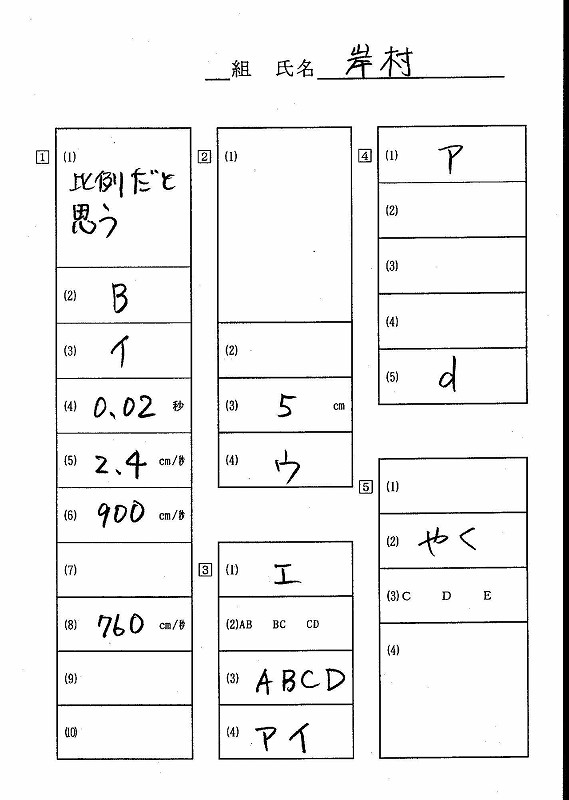 組 氏名 岸村
1
(1)
比例だと
思う
(2) B
(3) イ
(4) 0.02 秒
(5) 2.4 cm/秒
(6) 900 cm/秒
(7)
(8) 760 cm/秒
(9)
(10)
2
(1)
(2)
(3) 5 cm
(4) ウ
3
(1) エ
(2)AB BC CD
(3) ABCD
(4) アイ
4
(1) ア
(2)
(3)
(4)
(5) d
5
(1)
(2) やく
(3)C D E
(4)